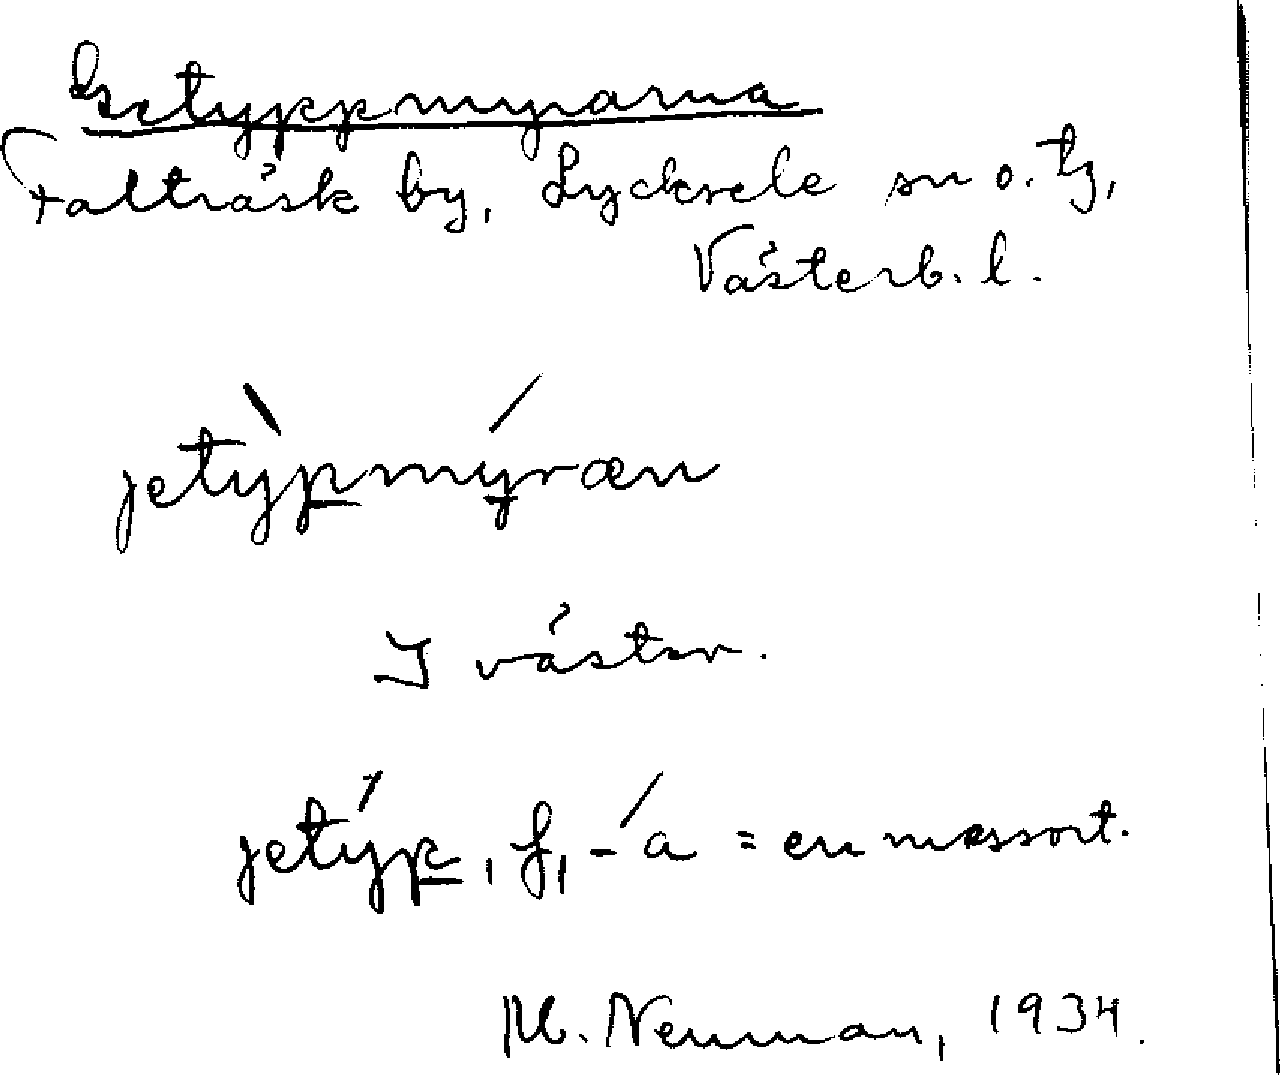 Getyppmyrarna
Falträsk by, Lycksele sn o. tg,
Västerb. l.
jetỳpmýræn
I väster.
jetýp, f, -á = en mossort.
M. Neuman, 1934.